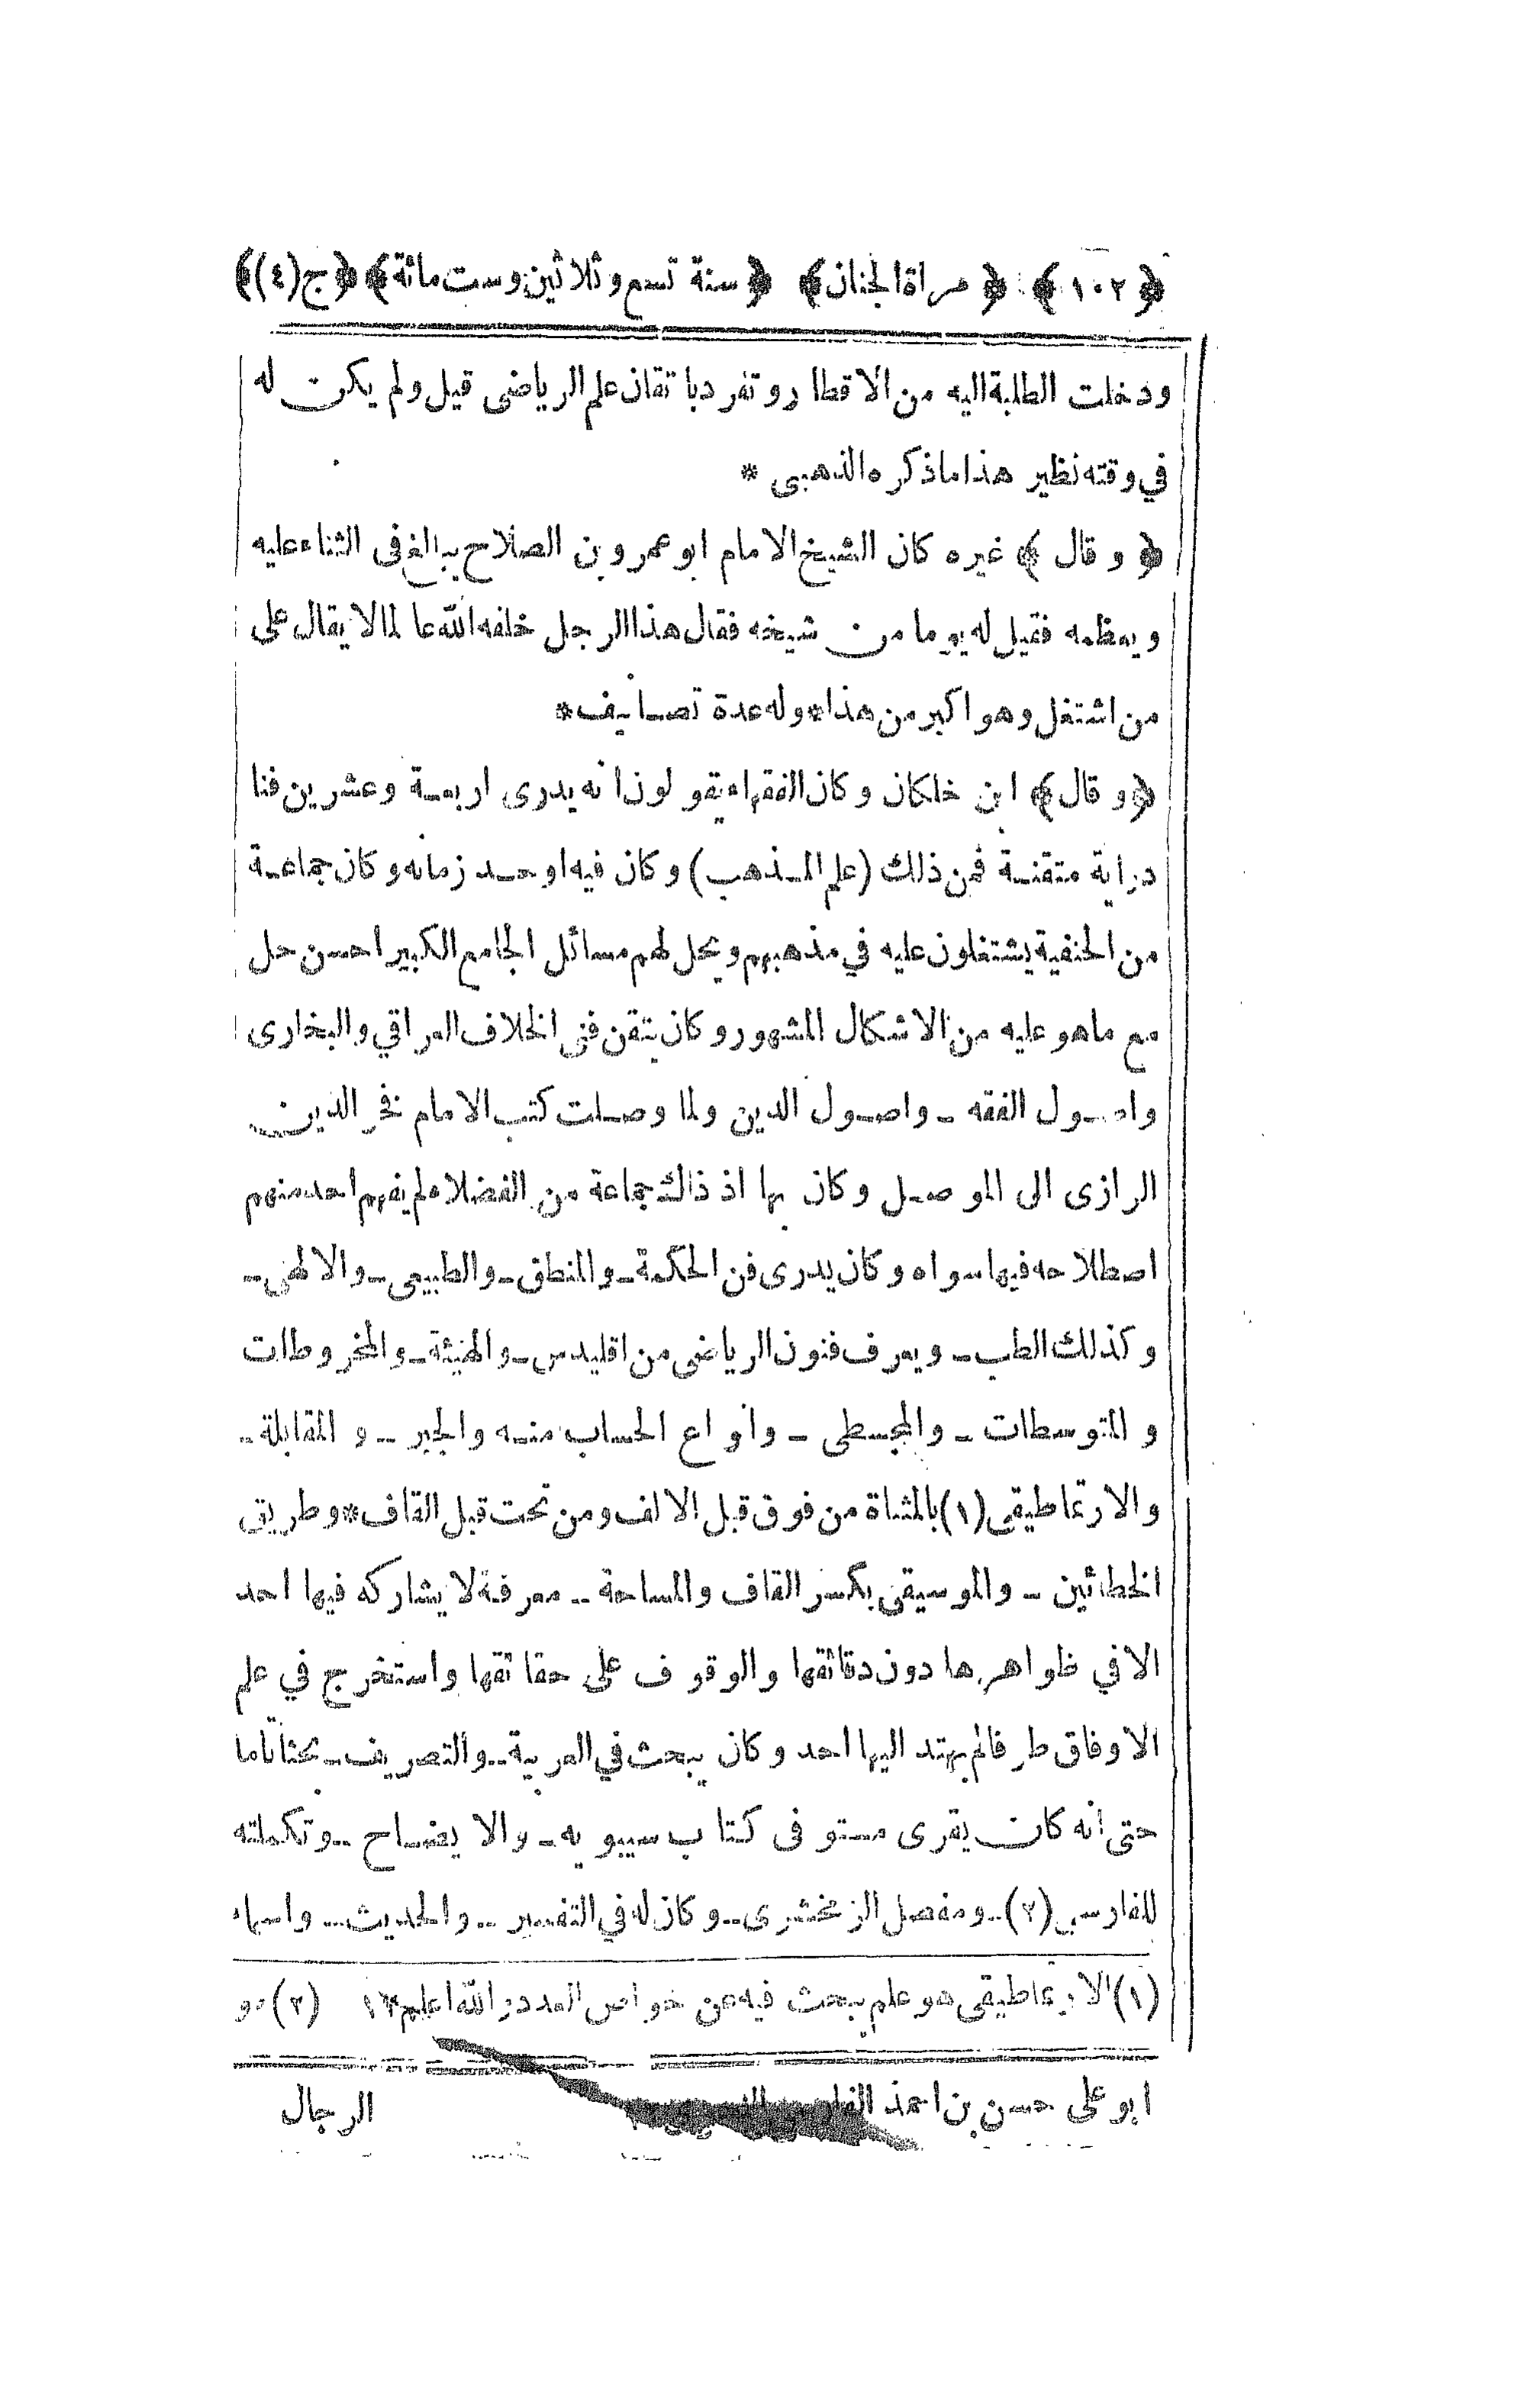 ﴿١٠٢﴾ ﴿مراة الجنان﴾ ﴿سنة تسع وثلاثين وست مائة﴾ ﴿ج(٤)﴾
ودخلت الطلبة اليه من الاقطار وتفرد باتقان علم الرياضى قيل ولم يكن له
في وقته نظير هذا ماذكره الذهبى *
﴿وقال﴾ غيره كان الشيخ الامام ابو عمرو بن الصلاح يبالغ فى الثناء عليه
ويعظمه فقيل له يوما من شيخه فقال هذا الرجل خلقه الله عالما لا يقال على
من اشتغل وهو اكبر من هذا * وله عدة تصانيف *
﴿وقال﴾ ابن خلكان وكان الفقهاء يقولون انه يدرى اربعة وعشرين فنا
دراية متقنة فمن ذلك (علم المذهب) وكان فيه اوحد زمانه وكان جماعة
من الحنفية يشتغلون عليه في مذهبهم ويحل لهم مسائل الجامع الكبير احسن حل
مع ماهو عليه من الاشكال المشهور وكان يتقن فنى الخلاف العراقي والبخارى
واصول الفقه - واصول الدين ولما وصلت كتب الامام فخر الدين
الرازى الى الموصل وكان بها اذ ذاك جماعة من الفضلاء لم يفهم احد منهم
اصطلاحه فيها سواه وكان يدرى فن الحكمة - والمنطق - والطبيعى - والالهى -
وكذلك الطب - ويعرف فنون الرياضى من اقليدس - والهيئة - والمخروطات
والمتوسطات - والمجسطى - وانواع الحساب منه والجبر - والمقابلة -
والارتماطيقى (١) بالمثناة من فوق قبل الالف ومن تحت قبل القاف * وطريق
الخطائين - والموسيقى بكسر القاف والمساحة - معرفة لا يشاركه فيها احد
الا في ظواهرها دون دقائقها والوقوف على حقائقها واستخرج في علم
الاوفاق طرقالم يهتد اليها احد وكان يبحث في العربية - والتصريف - بحثا تاما
حتى انه كان يقرى مستوفى كتاب سيبويه - والايضاح - وتكملته
للفارسى (٢) - ومفصل الزمخشرى - وكان له في التفسير - والحديث - واسماء
(١) الارتماطيقى هو علم يبحث فيه عن خواص العدد والله اعلم ١٢ (٢) هو
ابو على حسن بن احمد الفارسى
الرجال